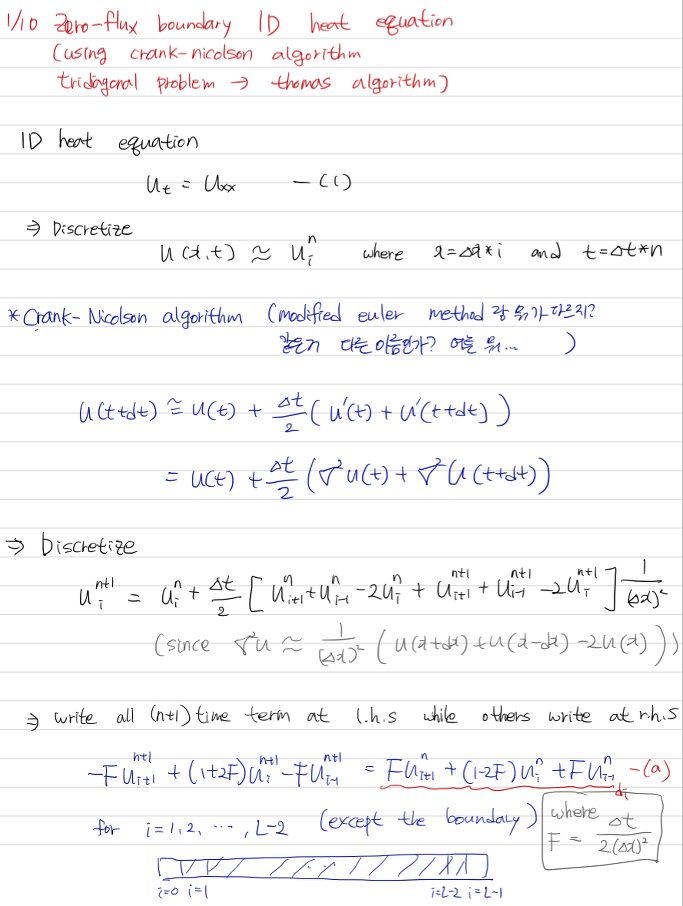 1/10 Zero-flux boundary 1D heat equation
(using crank-nicolson algorithm
tridagonal problem → thomas algorithm)
1D heat equation
u_t = u_xx — (1)
⇒ Discretize
u(x,t) ≈ u_i^n where x=Δx*i and t=Δt*n
*Crank-Nicolson algorithm (modified euler method랑 뭐가 다르지?
같은거 다른 이름인가? 여튼 뭐... )
u(t+dt) ≅ u(t) + Δt/2 (u'(t) + u'(t+dt))
= u(t) + Δt/2 (∇²u(t) + ∇²u(t+dt))
⇒ Discretize
u_i^{n+1} = u_i^n + Δt/2 [u_{i+1}^n + u_{i-1}^n - 2u_i^n + u_{i+1}^{n+1} + u_{i-1}^{n+1} - 2u_i^{n+1}] 1/(Δx)²
(since ∇²u ≈ 1/(Δx)² (u(x+dx) + u(x-dx) - 2u(x)))
⇒ write all (n+1) time term at l.h.s while others write at r.h.s
-Fu_{i+1}^{n+1} + (1+2F)u_i^{n+1} - Fu_{i-1}^{n+1} = Fu_{i+1}^n + (1-2F)u_i^n + Fu_{i-1}^n - (a)
d_i
for i=1, 2, ..., L-2 (except the boundary)
where F = Δt/2(Δx)²
i=0 i=1 i=L-2 i=L-1